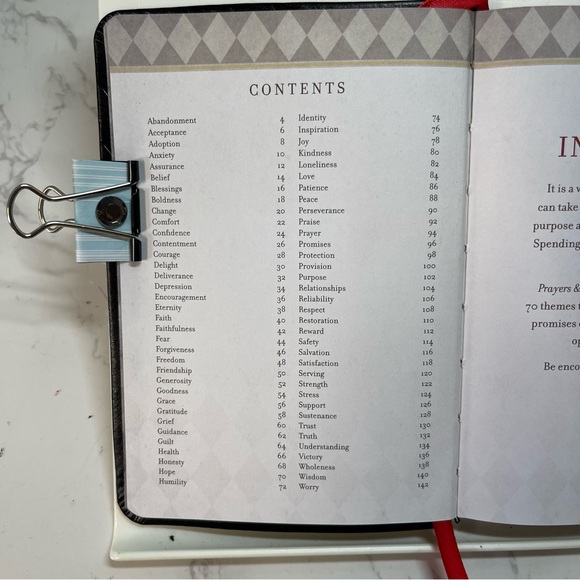 CONTENTS
Abandonment 4
Acceptance 6
Adoption 8
Anxiety 10
Assurance 12
Belief 14
Blessings 16
Boldness 18
Change 20
Comfort 22
Confidence 24
Contentment 26
Courage 28
Delight 30
Deliverance 32
Depression 34
Encouragement 36
Eternity 38
Faith 40
Faithfulness 42
Fear 44
Forgiveness 46
Freedom 48
Friendship 50
Generosity 52
Goodness 54
Grace 56
Gratitude 58
Grief 60
Guidance 62
Guilt 64
Health 66
Honesty 68
Hope 70
Humility 72
Identity 74
Inspiration 76
Joy 78
Kindness 80
Loneliness 82
Love 84
Patience 86
Peace 88
Perseverance 90
Praise 92
Prayer 94
Promises 96
Protection 98
Provision 100
Purpose 102
Relationships 104
Reliability 106
Respect 108
Restoration 110
Reward 112
Safety 114
Salvation 116
Satisfaction 118
Serving 120
Strength 122
Stress 124
Support 126
Sustenance 128
Trust 130
Truth 132
Understanding 134
Victory 136
Wholeness 138
Wisdom 140
Worry 142
IN
It is a
can take
purpose
Spending
Prayers &
70 themes
promises
op
Be enco